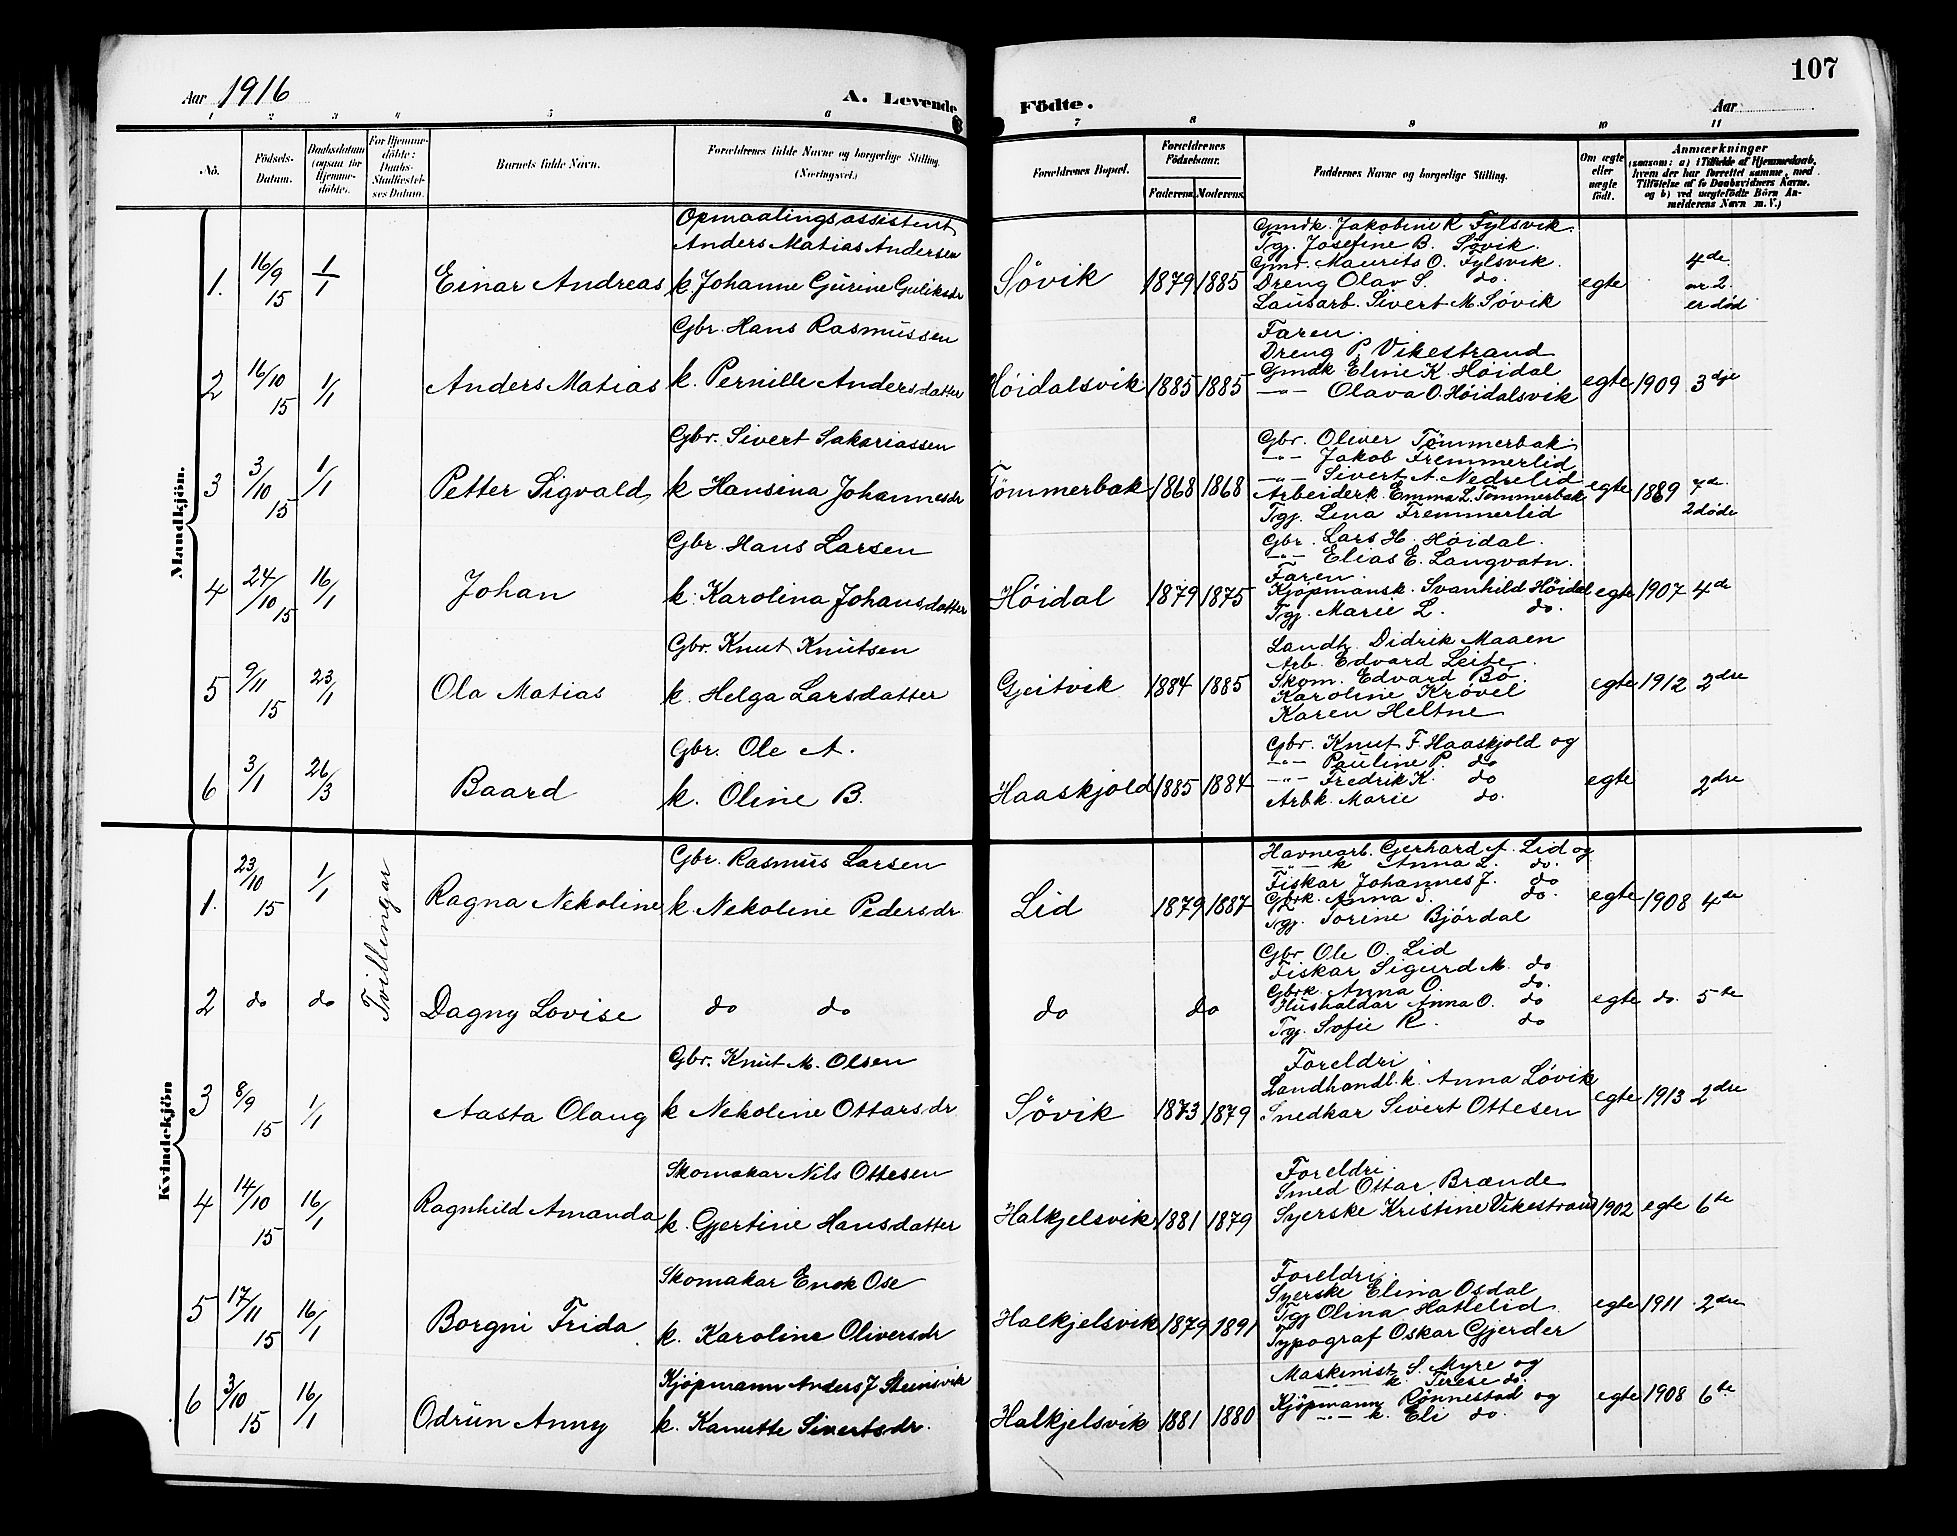 107
Aar 1916
A. Levende Födte.
Aar
1 2 3 4 5 6 7 8 9 10 11
No.
Födsels-Datum.
Daabsdatum (ogsaa for Hjemmedöbte).
For Hjemmedöbte: Daabs-Stadfæstelses Datum.
Barnets fulde Navn.
Forældrenes fulde Navne og borgerlige Stilling. (Næringsvei.)
Forældrenes Bopæl.
Forældrenes Födselsaar.
Faderens. Moderens.
Faddernes Navne og borgerlige Stilling.
Om ægte eller uægte födt.
Anmærkninger
(saasom: a) i Tilfælde af Hjemmedaab, hvem der har forrettet samme, med Tilföielse af to Daabsvidners Navne, og b) ved uægtefödte Börn Anmelderens Navn m. V.)
Mandkjön.
1. 16/9 15 1/1 Einar Andreas
Opmaalingsassistent
Anders Matias Andersen
k. Johanne Gurine Guliksdr
Søvik 1879 1885
Gmdk. Jakobine K Fylsvik.
Tgj. Josefine B. Søvik.
Gmd. Maurits O. Fylsvik.
Dreng Olav S. do.
Lausarb. Sivert M. Søvik
egte
4de.
nr. 2.
er død
2 16/10 15 1/1 Anders Matias
Gbr. Hans Rasmussen
k. Pernille Andersdatter
Høidalsvik 1885 1885
Faren.
Dreng P. Vikestrand
Gmdk Eline K. Høidal
-"- Olava O. Høidalsvik
egte 1909 3dje
3 3/10 15 1/1 Petter Sigvald
Gbr. Sivert Sakariassen
k Hansina Johannesdr
Tømmerbak 1868 1868
Gbr. Oliver Tømmerbak.
-"- Jakob Fremmerlid
-"- Sivert A. Nedrelid
Arbeiderk. Emma L. Tømmerbak
Tgj. Lina Fremmerlid
egte 1889
2 døde
4 24/10 15 16/1 Johan
Gbr. Hans Larsen
k. Karolina Johansdatter
Høidal 1879 1875
Gbr. Lars H. Høidal.
-"- Elias E. Langvatn.
Faren.
Kjøpmansk. Svanhild Høidal
Tgj. Marie L. do.
egte 1907 4de
5 9/11 15 23/1 Ola Matias
Gbr. Knut Knutsen
k. Helga Larsdatter
Geitvik 1884 1885
Landh. Didrik Maaen
Arb. Edvard Leite.
Skom. Edvard Bø.
Karoline Krøvel
Karen Heltne
egte 1912 2dre
6 3/1 26/3 Baard
Gbr. Ole A.
k. Oline B.
Haaskjold 1885 1884
Gbr. Knut F. Haaskjold og
-"- Pauline P. do
-"- Fredrik K. do
Arbk. Marie do.
egte 2dre
Kvindekjön
Tvillingar
1. 23/10 15 1/1 Ragna Nekoline
Gbr. Rasmus Larsen
k Nekoline Pedersdr
Lid 1879 1887
Havnearb. Gerhard A. Lid og
-"- k Anna L. do.
Fiskar Johannes J. do
Gbrk. Anna S. do.
Tgj. Torine Bjørdal
egte 1908 4de
2 do do Dagny Lovise
do do
do do
Gbr Ole O. Lid
Fiskar Sigurd M. do
Gbrk. Anna O. do.
Hushaldar Anna O. do
Tgj. Sofie R. do
egte do. 5te
3 8/9 15 1/1 Aasta Olaug
Gbr. Knut M. Olsen
k Nekoline Ottarsdr
Søvik 1873 1879
Foreldri.
Landhandl. k. Anna Løvik
Snedkar Sivert Ottesen
egte 1913 2dre
4 14/10 15 16/1 Ragnhild Amanda
Skomakar Nils Ottesen
k. Gjertine Hansdatter
Halkjelsvik 1881 1879
Foreldri.
Smed Ottar Brænde
Syerske Kristine Vikestrand
1902 egte 6te
5 17/11 15 16/1 Borgni Frida
Skomakar Enok Ose
k. Karoline Oliversdr
Halkjelsvik 1879 1891
Foreldri.
Syerske Elina Osdal
Tgj Olina Hatlelid.
Typograf Oskar Gjerder
egte 1911 2dre
6 3/10 15 16/1 Odrun Anny
Kjøpmann Anders J Steinsvik
k. Kanutte Sivertsdr.
Halkjelsvik 1881 1880
Maskinist S. Myre og
-"- k. Terese do.
Kjøpmann Rønnestad og
-"- k. Eli do.
egte 1908 6te